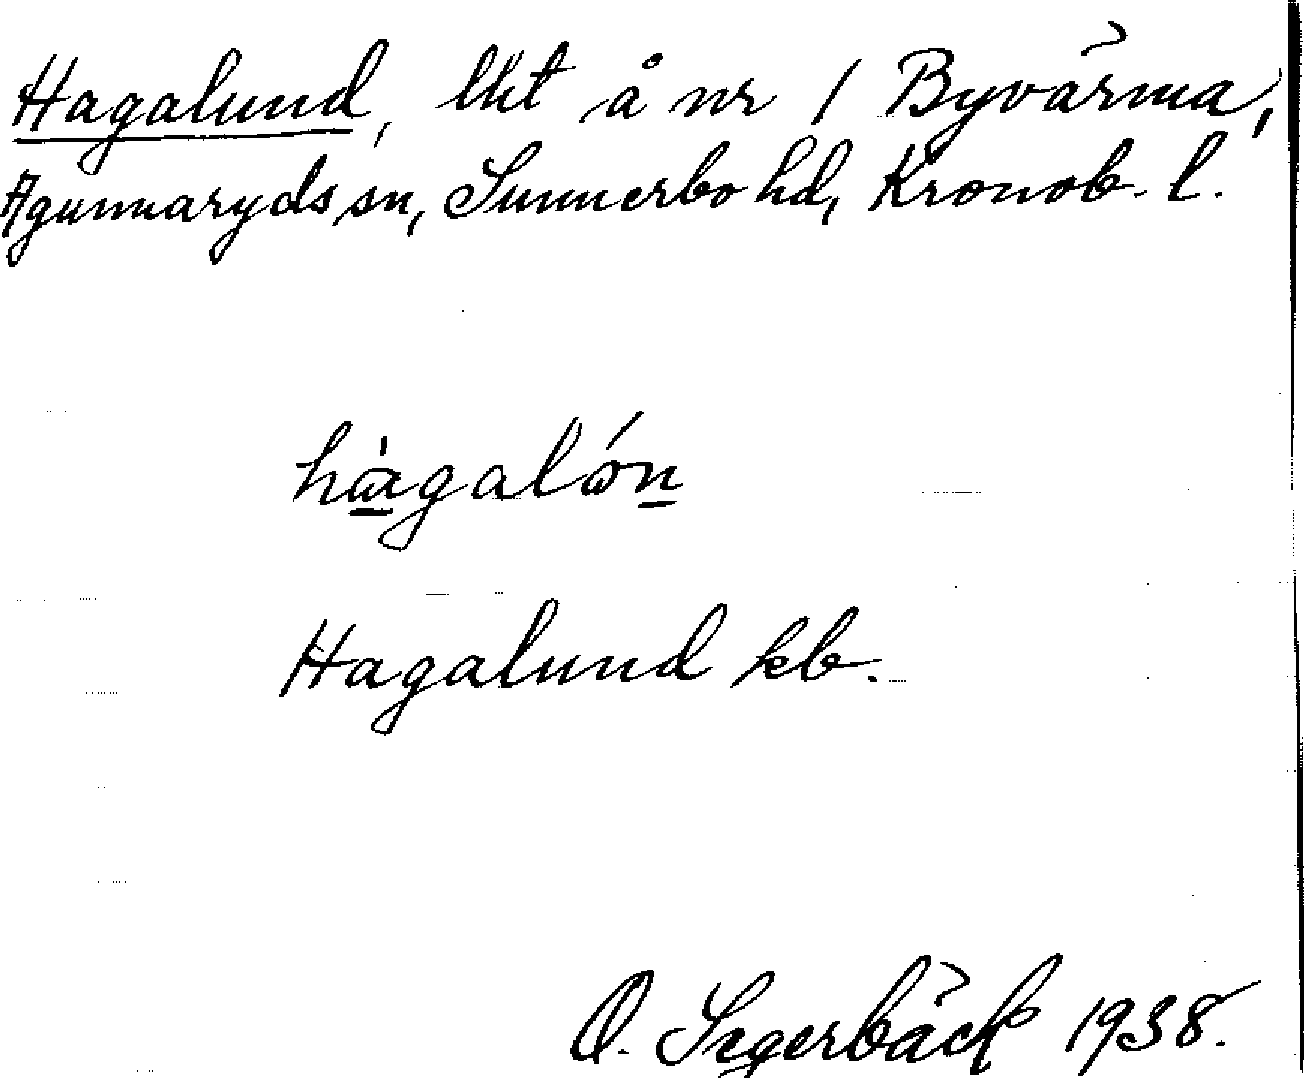 Hagalund, lht å nr 1 Byvärma,
Agunnaryds sn, Sunnerbo hd, Kronob. l.
hàgalón
Hagalund kb.
O. Segerbäck 1938.